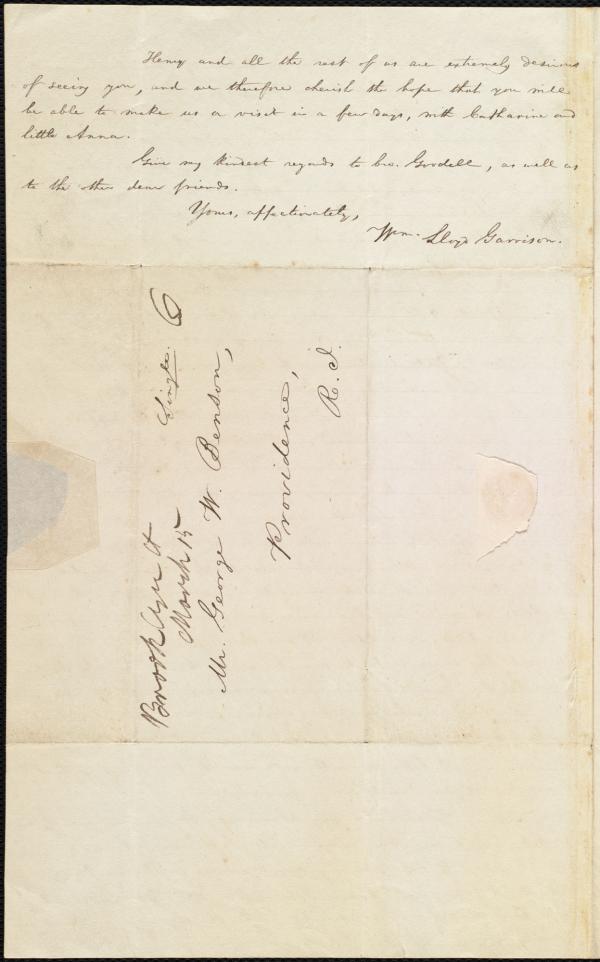 Henry and all the rest of us are extremely desirous
of seeing you, and we therefore cherish the hope that you will
be able to make us a visit in a few days, with Catharine and
little Anna.
Give my kindest regards to bro. Goodell, as well as
to the other dear friends.
Yours, affectionately,
Wm. Lloyd Garrison.
Brooklyn Ct
March 15
Single. 6
Mr. George W. Benson,
Providence,
R. I.